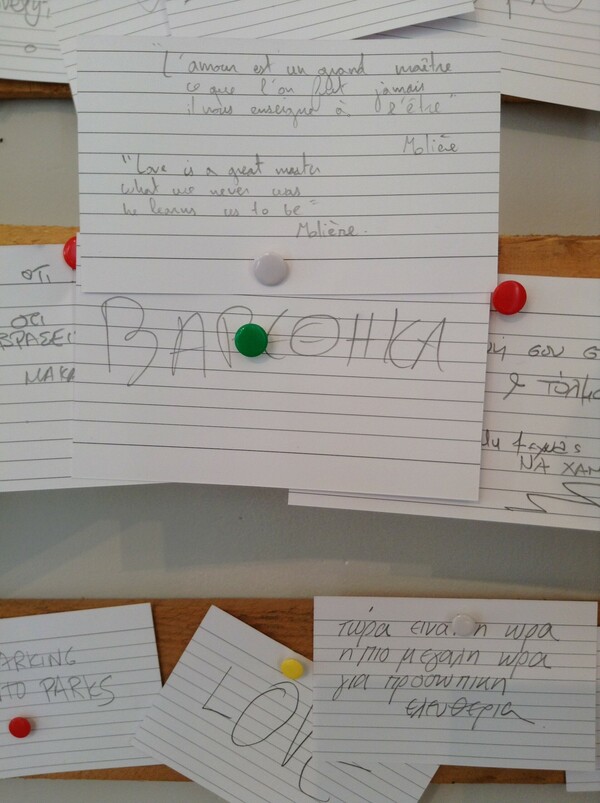 "L'amour est un grand maître
ce que l'on fut jamais
il nous enseigne à l'être"
Molière
"Love is a great master
what we never was
he learns us to be"
Molière.
οτι
ΟΤΙ
ΒΡΑΣΕΙ
ΜΑΚΑ
ΒΑΡΕΘΗΚΑ
σου σ
& τόλμα
ΝΑ ΧΑΝ
ARKING
TO PARKS
LOVE
τώρα ειναι η ωρα
η πιο μεγαλη ωρα
για προσωπικη
ελευθερια